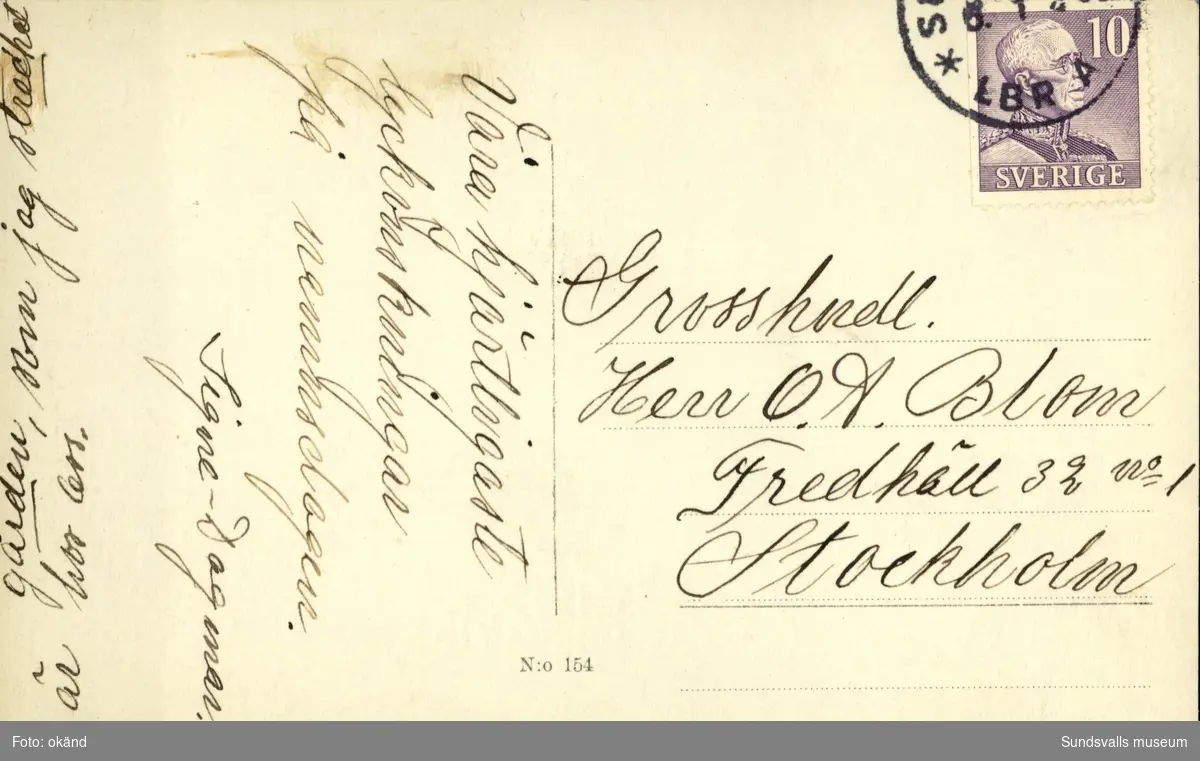 Våra hjärtligaste
lyckönskningar
på namnsdagen.
Signe-Dagmar.
gården, som jag strecket
är hos Ers.
10
SVERIGE
LBR
Grosshndl.
Herr O. A. Blom
Fredhäll 32 no 1
Stockholm
N:o 154
Foto: okänd
Sundsvalls museum